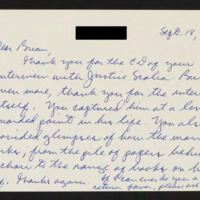 Sept. 18,
Dear Brian,
Thank you for the CD of your
interview with Justice Scalia. But
even more, thank you for the interv
itself. You captured him at a lov
point in his life. You als
rovided glimpses of how the man
rks, from the pile of papers behin
chair to the range of books on h
Thanks again. If I can ever do you a
return favor, please as